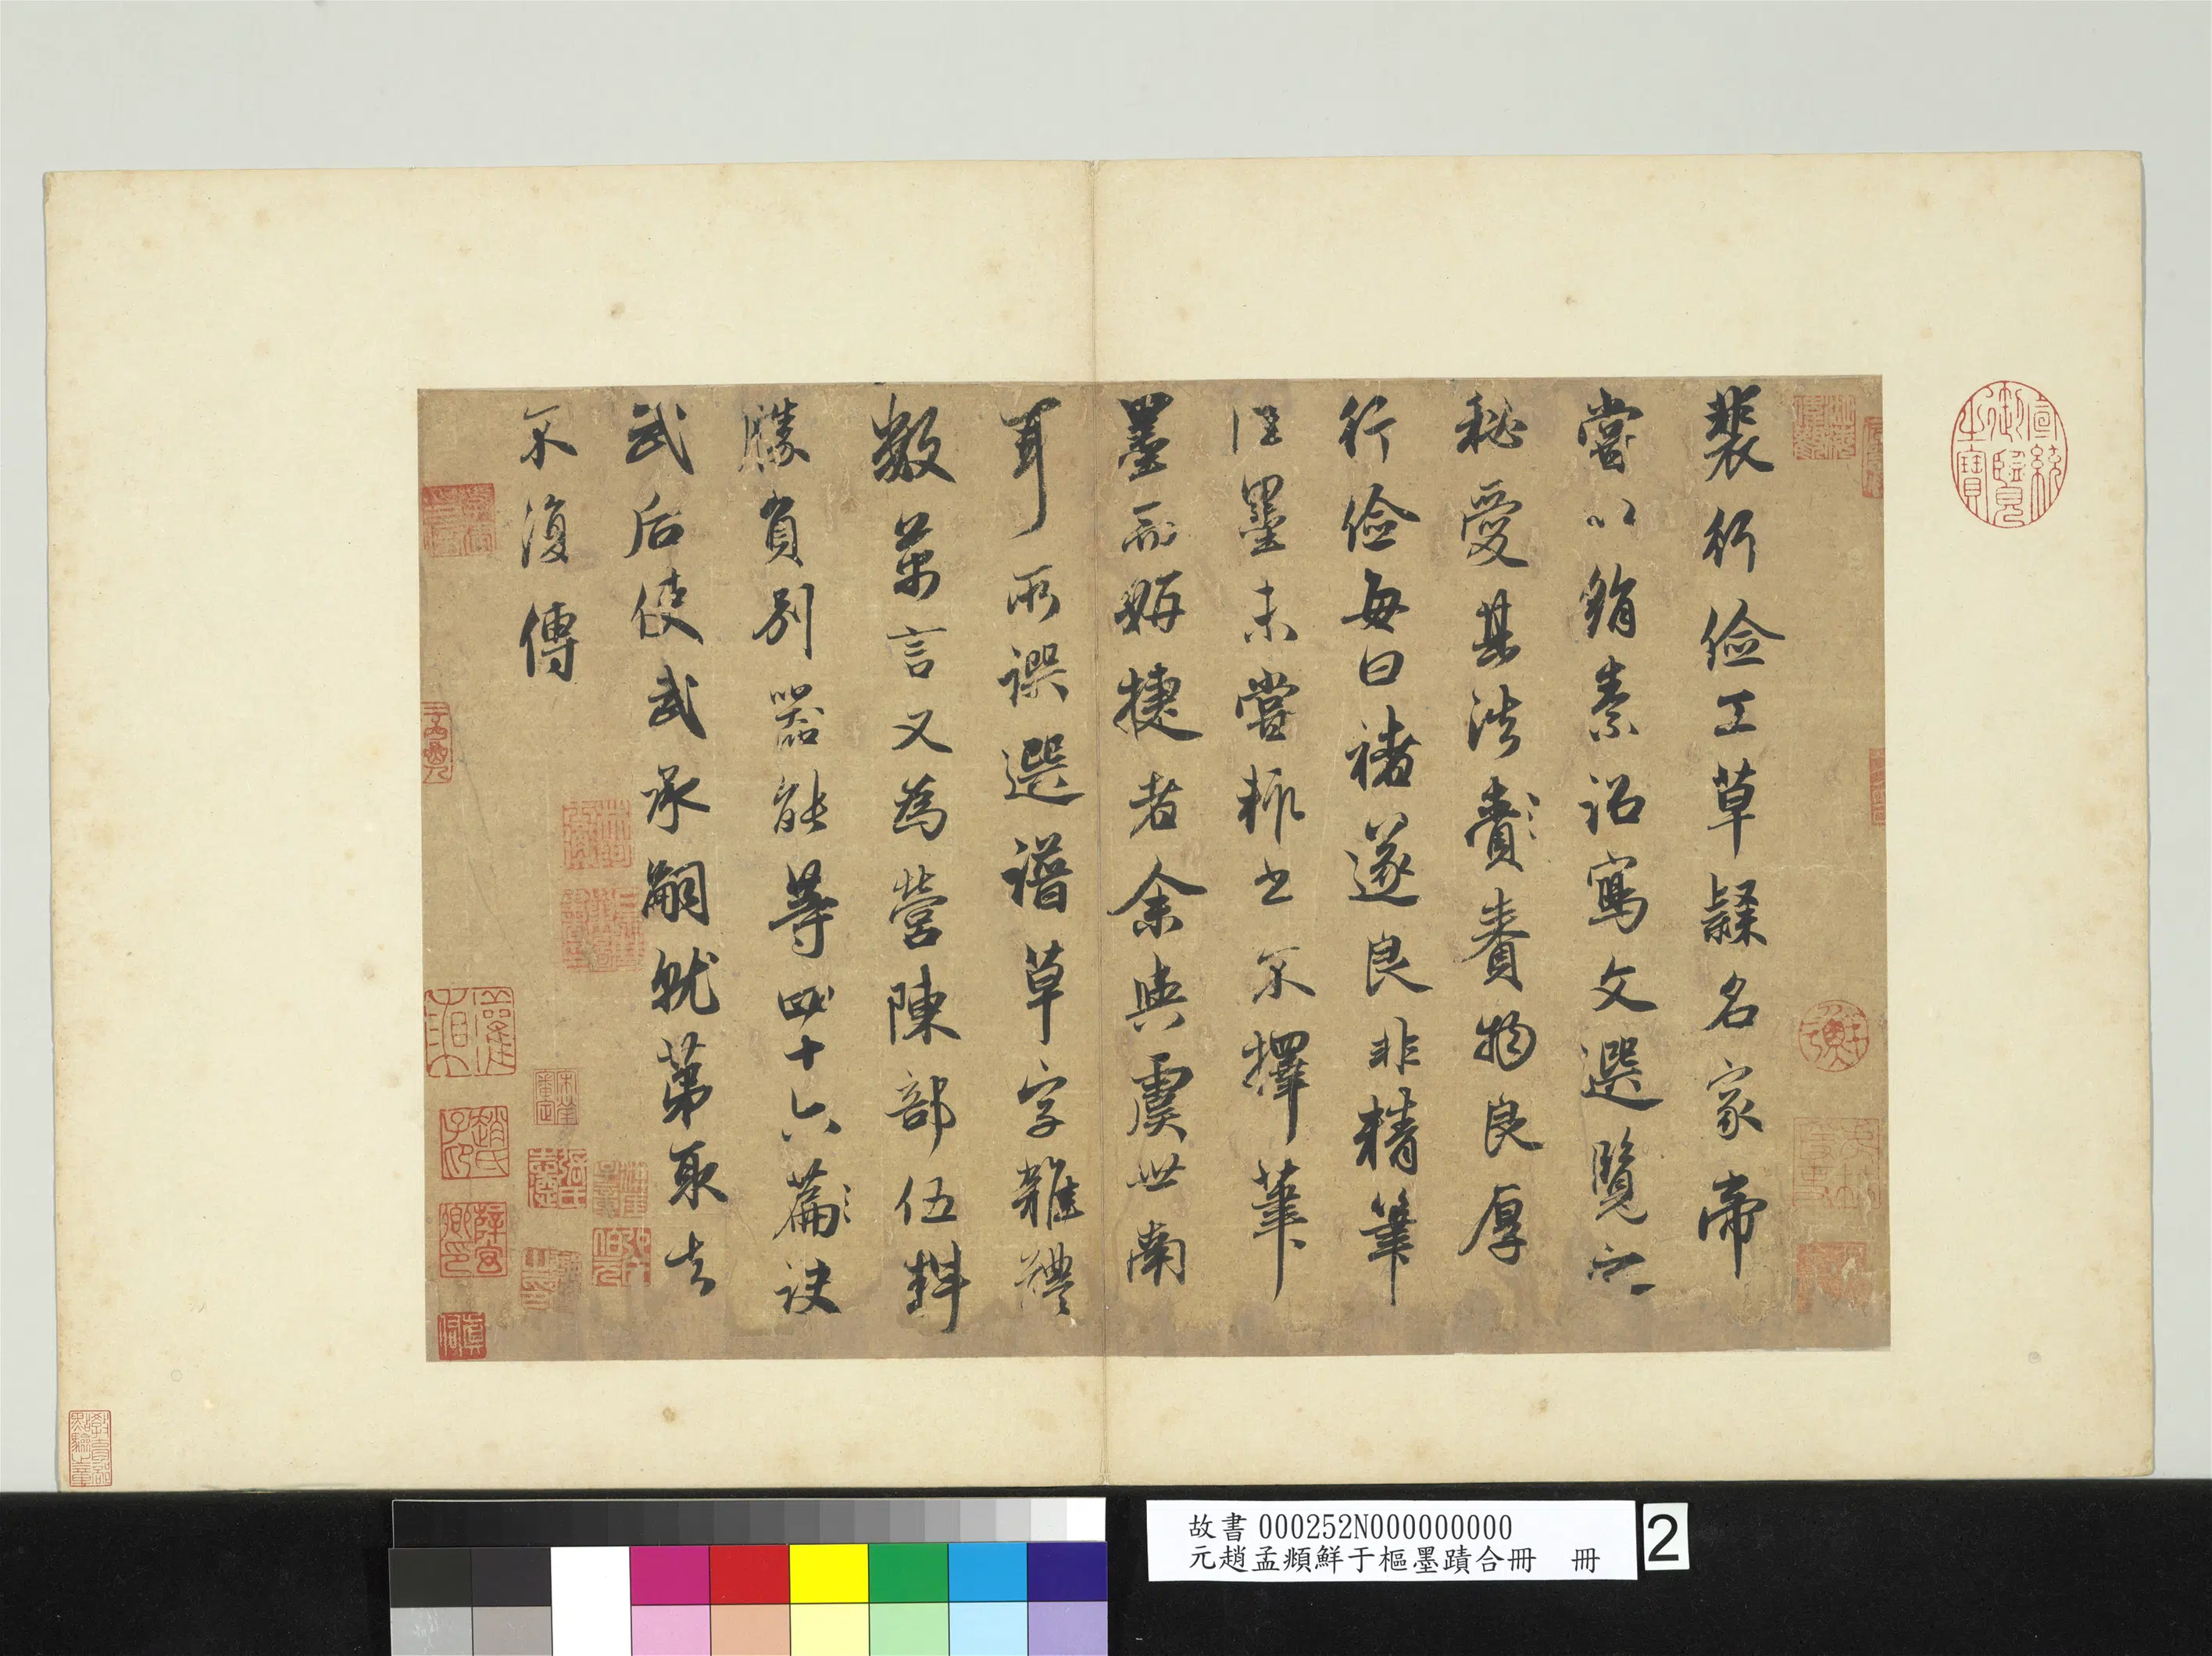 裴行儉工草隸名家帝
嘗以絹素詔寫文選覽之
秘愛其法賚賚物良厚
行儉每曰褚遂良非精筆
佳墨未嘗輒書不擇筆
墨而妍捷者余與虞世南
耳所譔選譜草字雜體
數萬言又為營陳部伍料
勝負別器能等四十六篇訣
武后使武承嗣就第取去
不復傳
宣統御覽之寶
故書 000252N000000000
元趙孟頫鮮于樞墨蹟合冊 冊
2